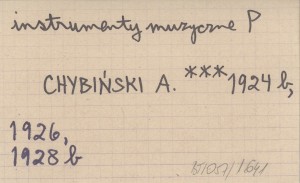 instrumenty muzyczne P
CHYBIŃSKI A. *** 1924 b,
1926,
1928 b